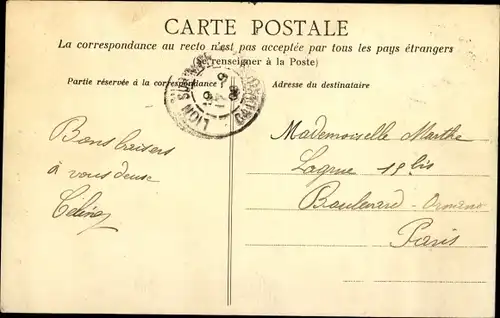 CARTE POSTALE
La correspondance au recto n'est pas acceptée par tous les pays étrangers
(Se renseigner à la Poste)
Partie réservée à la correspondance
Adresse du destinataire
Bons baisers
à vous deux
Célina
Mademoiselle Marthe
15 bis
Boulevard Ornano
Paris